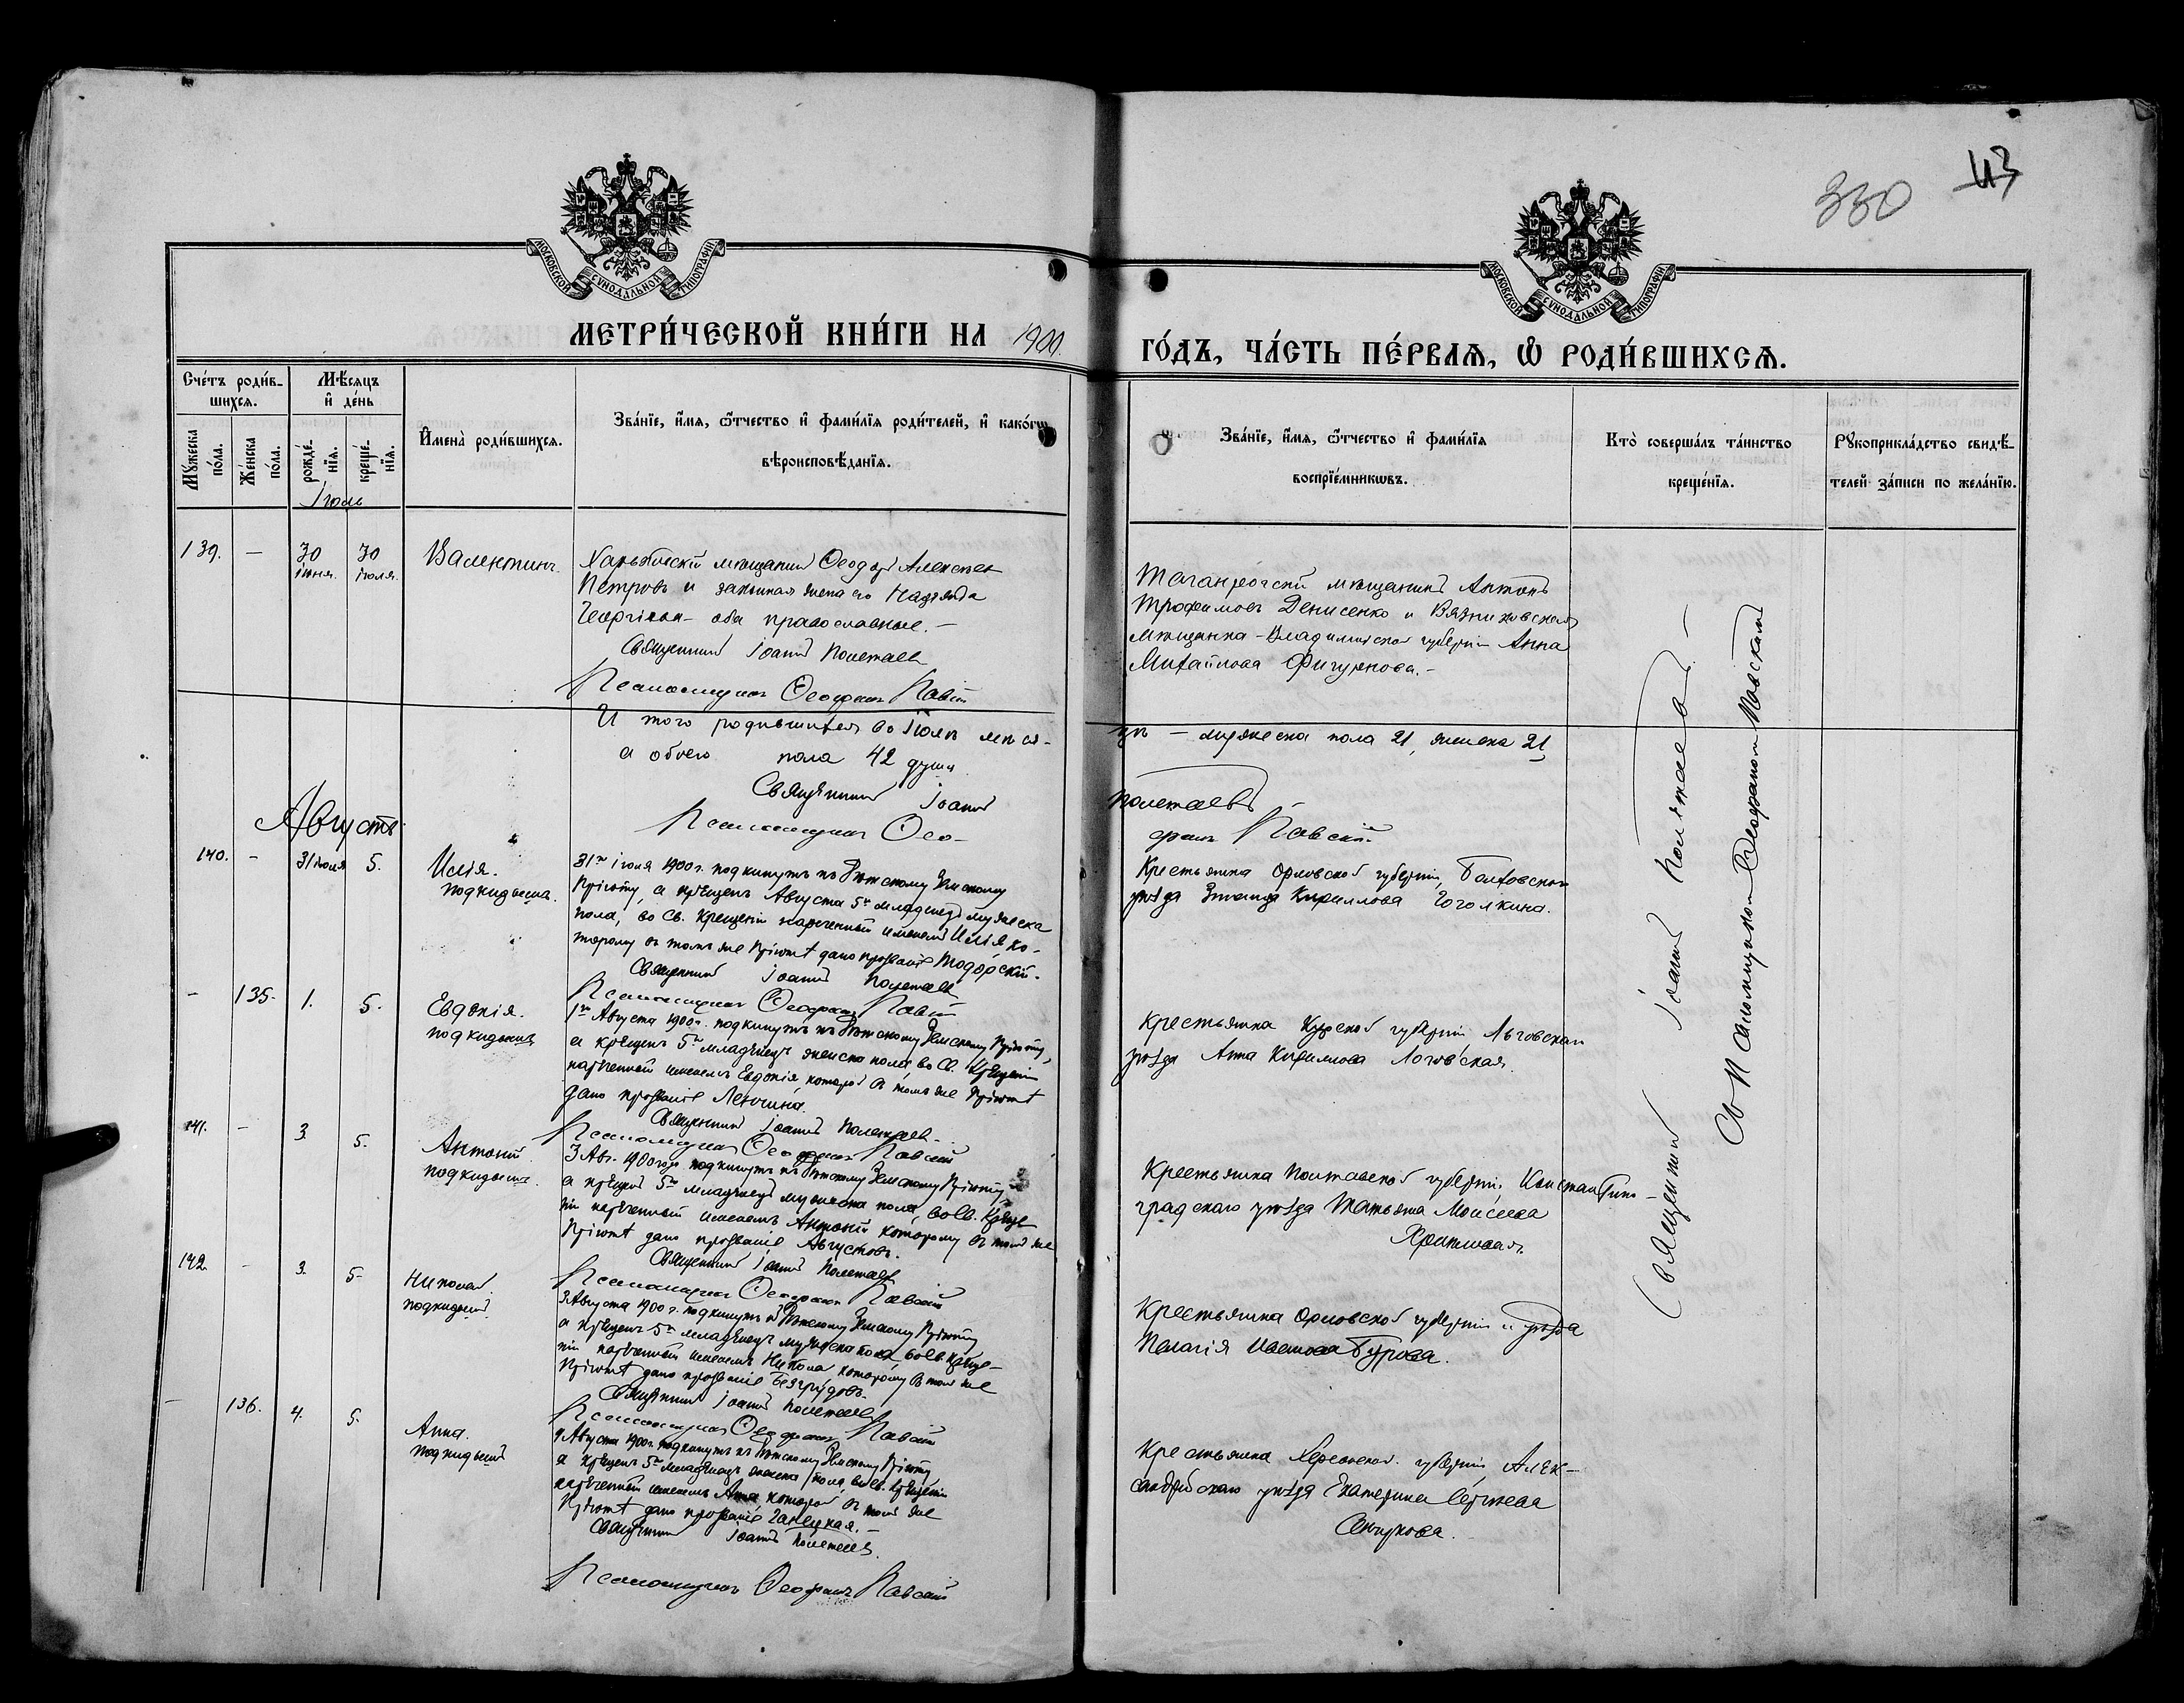 330
43
МОСКОВСКОЙ СѴНОДАЛЬНОЙ ТИПОГРАФІИ
МОСКОВСКОЙ СѴНОДАЛЬНОЙ ТИПОГРАФІИ
МЕТРИ́ЧЕСКОЙ КНИ́ГИ НА 1900.
ГО́ДЪ, ЧА́СТЬ ПЕ́РВАѦ, Ѡ҆ РОДИ́ВШИХСѦ.
Сче́тъ роди́в-
шихсѧ.
Мѣ́сѧцъ
и҆ де́нь
Мꙋ́жеска
по́ла.
Же́нска
по́ла.
рожде́-
нїѧ.
креще́-
нїѧ.
И҆мена̀ роди́вшихсѧ.
Зва́нїе, и҆́мѧ, ѻ҆́тчество и҆ фами́лїѧ роди́телей, и҆ како́гѡ
вѣроисповѣ́данїѧ.
Зва́нїе, и҆́мѧ, ѻ҆́тчество и҆ фами́лїѧ
воспрїе́мникѡвъ.
Кто̀ соверша́лъ та́инство
креще́нїѧ.
Рꙋкоприкла́дство свидѣ́-
телей за́писи по жела́нїю.
Іюль
139. — 30 іюня. 30 іюля. Валентинъ.
Харьковскій мѣщанинъ Ѳеодоръ Алексѣевъ
Петровъ и законная жена его Надежда
Георгіева - оба православные. —
Священникъ Іоаннъ Полетаевъ
Псаломщикъ Ѳеофанъ Павскій
Таганрогскій мѣщанинъ Антонъ
Трофимовъ Денисенко и Вязниковская
мѣщанка - Владимірской губерніи Анна
Михайлова Фигурнова. -
И того родившихся во Іюлѣ мѣся-
цѣ — мужеска пола 21, женска 21,
а обоего пола 42 души.
Священникъ Іоаннъ
Полетаевъ
Псаломщикъ Ѳео-
фанъ Павскій
Августъ
140. - 31 іюля 5. Илія.
подкидышъ.
31го іюля 1900 г. подкинутъ къ Земскому
Пріюту, а крещенъ Августа 5го младенецъ мужеска
пола, во Св. Крещеніи нареченный именемъ Илія ко-
торому въ томъ же Пріютѣ дано прозваніе Тодорскій.
Священникъ Іоаннъ Полетаевъ
Псаломщикъ Ѳеофанъ Павскій
Крестьянка Орловской губерніи, Болховскаго
уѣзда Зинаида Кириллова Гоголкина.
- 135. 1. 5. Евдокія.
подкидышъ
1го Августа 1900 г. подкинутъ къ Земскому Пріюту,
а крещенъ 5го младенецъ женска пола во Св. Крещеніи
нареченный именемъ Евдокія, которой въ томъ же Пріютѣ
дано прозваніе
Священникъ Іоаннъ Полетаевъ
Псаломщикъ Ѳеофанъ Павскій
Крестьянка Курской губерніи Льговскаго
уѣзда Анна Кириллова
141. - 3. 5. Антоній
подкидышъ.
3 Авг. 1900 года подкинутъ къ Земскому Пріюту
а крещенъ 5го младенецъ мужеска пола, во Св. Креще-
ніи нареченный именемъ Антоній которому въ томъ же
Пріютѣ дано прозваніе Августовъ.
Священникъ Іоаннъ Полетаевъ
Псаломщикъ Ѳеофанъ Павскій
Крестьянка Полтавской губерніи, Константино-
градскаго уѣзда Татьяна Моисеева
142. - 3. 5. Николай
подкидышъ
3 Августа 1900 г. подкинутъ къ Земскому Пріюту
а крещенъ 5го младенецъ мужеска пола, во Св. Креще-
ніи нареченный именемъ Николай которому въ томъ же
Пріютѣ дано прозваніе
Священникъ Іоаннъ Полетаевъ
Псаломщикъ Ѳеофанъ Павскій
Крестьянка Орловской губерніи и уѣзда
Пелагія Иванова Бурова.
- 136. 4. 5. Анна.
подкидышъ
4 Августа 1900 г. подкинутъ къ Земскому Пріюту
а крещенъ 5го младенецъ женска пола, во Св. Крещеніи
нареченный именемъ Анна, которой въ томъ же
Пріютѣ дано прозваніе
Священникъ Іоаннъ Полетаевъ.
Псаломщикъ Ѳеофанъ Павскій
Крестьянка Херсонской губерніи, Алек-
сандрійскаго уѣзда Екатерина Сергѣева
Священникъ Іоаннъ Полетаевъ —
Съ Псаломщикомъ Ѳеофаномъ Павскимъ